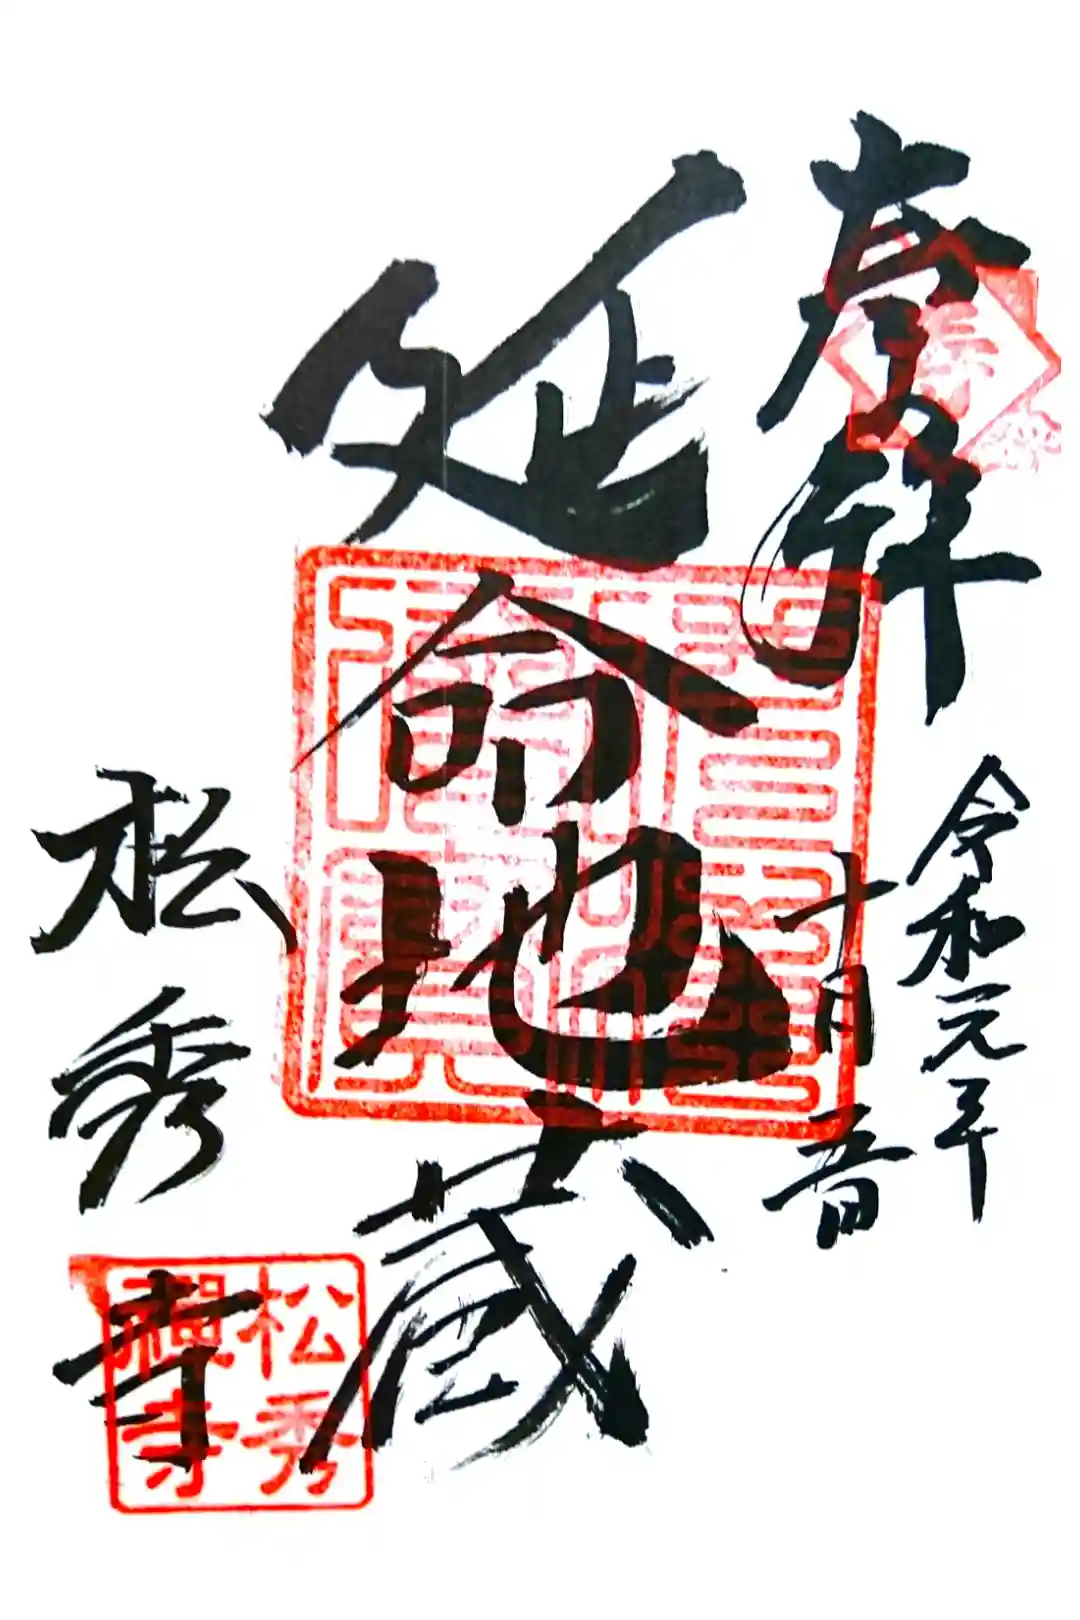 奉拝
令和元年
十月 吉日
延命地蔵
松秀寺
松秀
禅寺